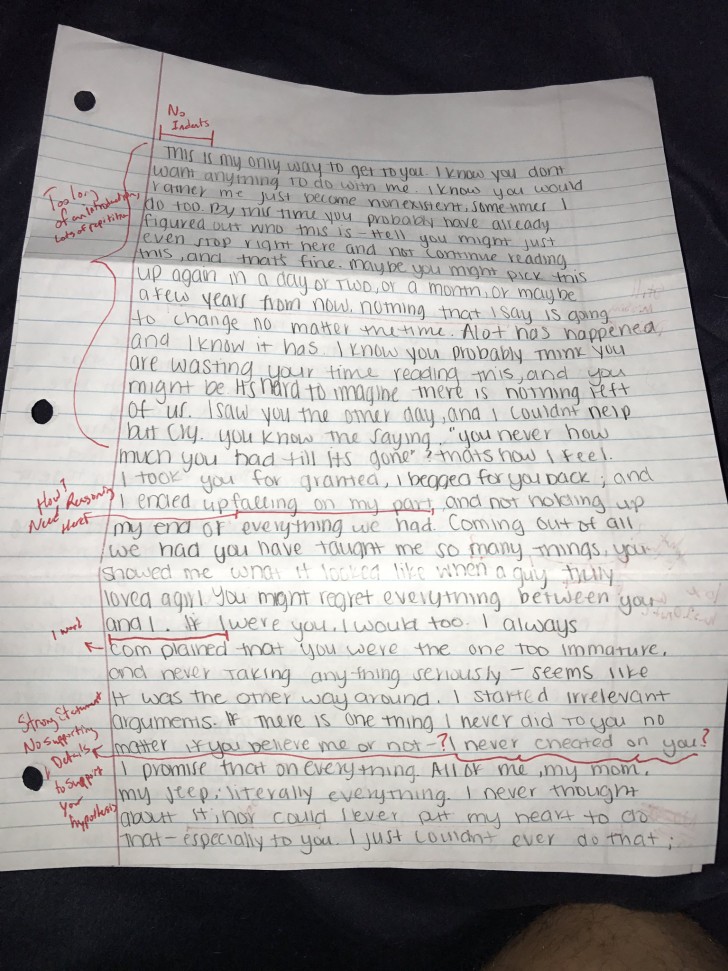 No
Indents
This is my only way to get to you. I know you dont
want anything to do with me. I know you would
rather me just become nonexistent, sometimes I
do too. By this time you probably have already
figured out who this is - Hell you might just
even stop right here and not continue reading
this, and thats fine. maybe you might pick this
up again in a day or two, or a month, or maybe
a few years from now. nothing that I say is going
to change no matter the time. Alot has happened,
and I know it has. I know you probably think you
are wasting your time reading this, and you
might be. Its hard to imagine there is nothing left
of us. I saw you the other day, and I couldnt help
but cry. you know the saying, "you never how
much you had till its gone"? thats how I feel.
I took you for granted, I begged for you back; and
I ended up falling on my part, and not holding up
my end of everything we had. Coming out of all
we had you have taught me so many things, you
showed me what it looked like when a guy truly
loved a girl. You might regret everything between you
and I. If I were you, I would too. I always
complained that you were the one too immature,
and never taking anything seriously - seems like
it was the other way around. I started irrelevant
arguments. If there is one thing I never did to you no
matter if you believe me or not -? I never cheated on you?
I promise that on everything. All of me, my mom,
my jeep; literally everything. I never thought
about it, nor could I ever put my heart to do
that - especially to you. I just couldnt ever do that;
Too long
of an introduction,
Lots of repitition
How?
Need Reasoning
Here!
1 word
Strong Statement
No supporting
Details
to support
your
hypothesis